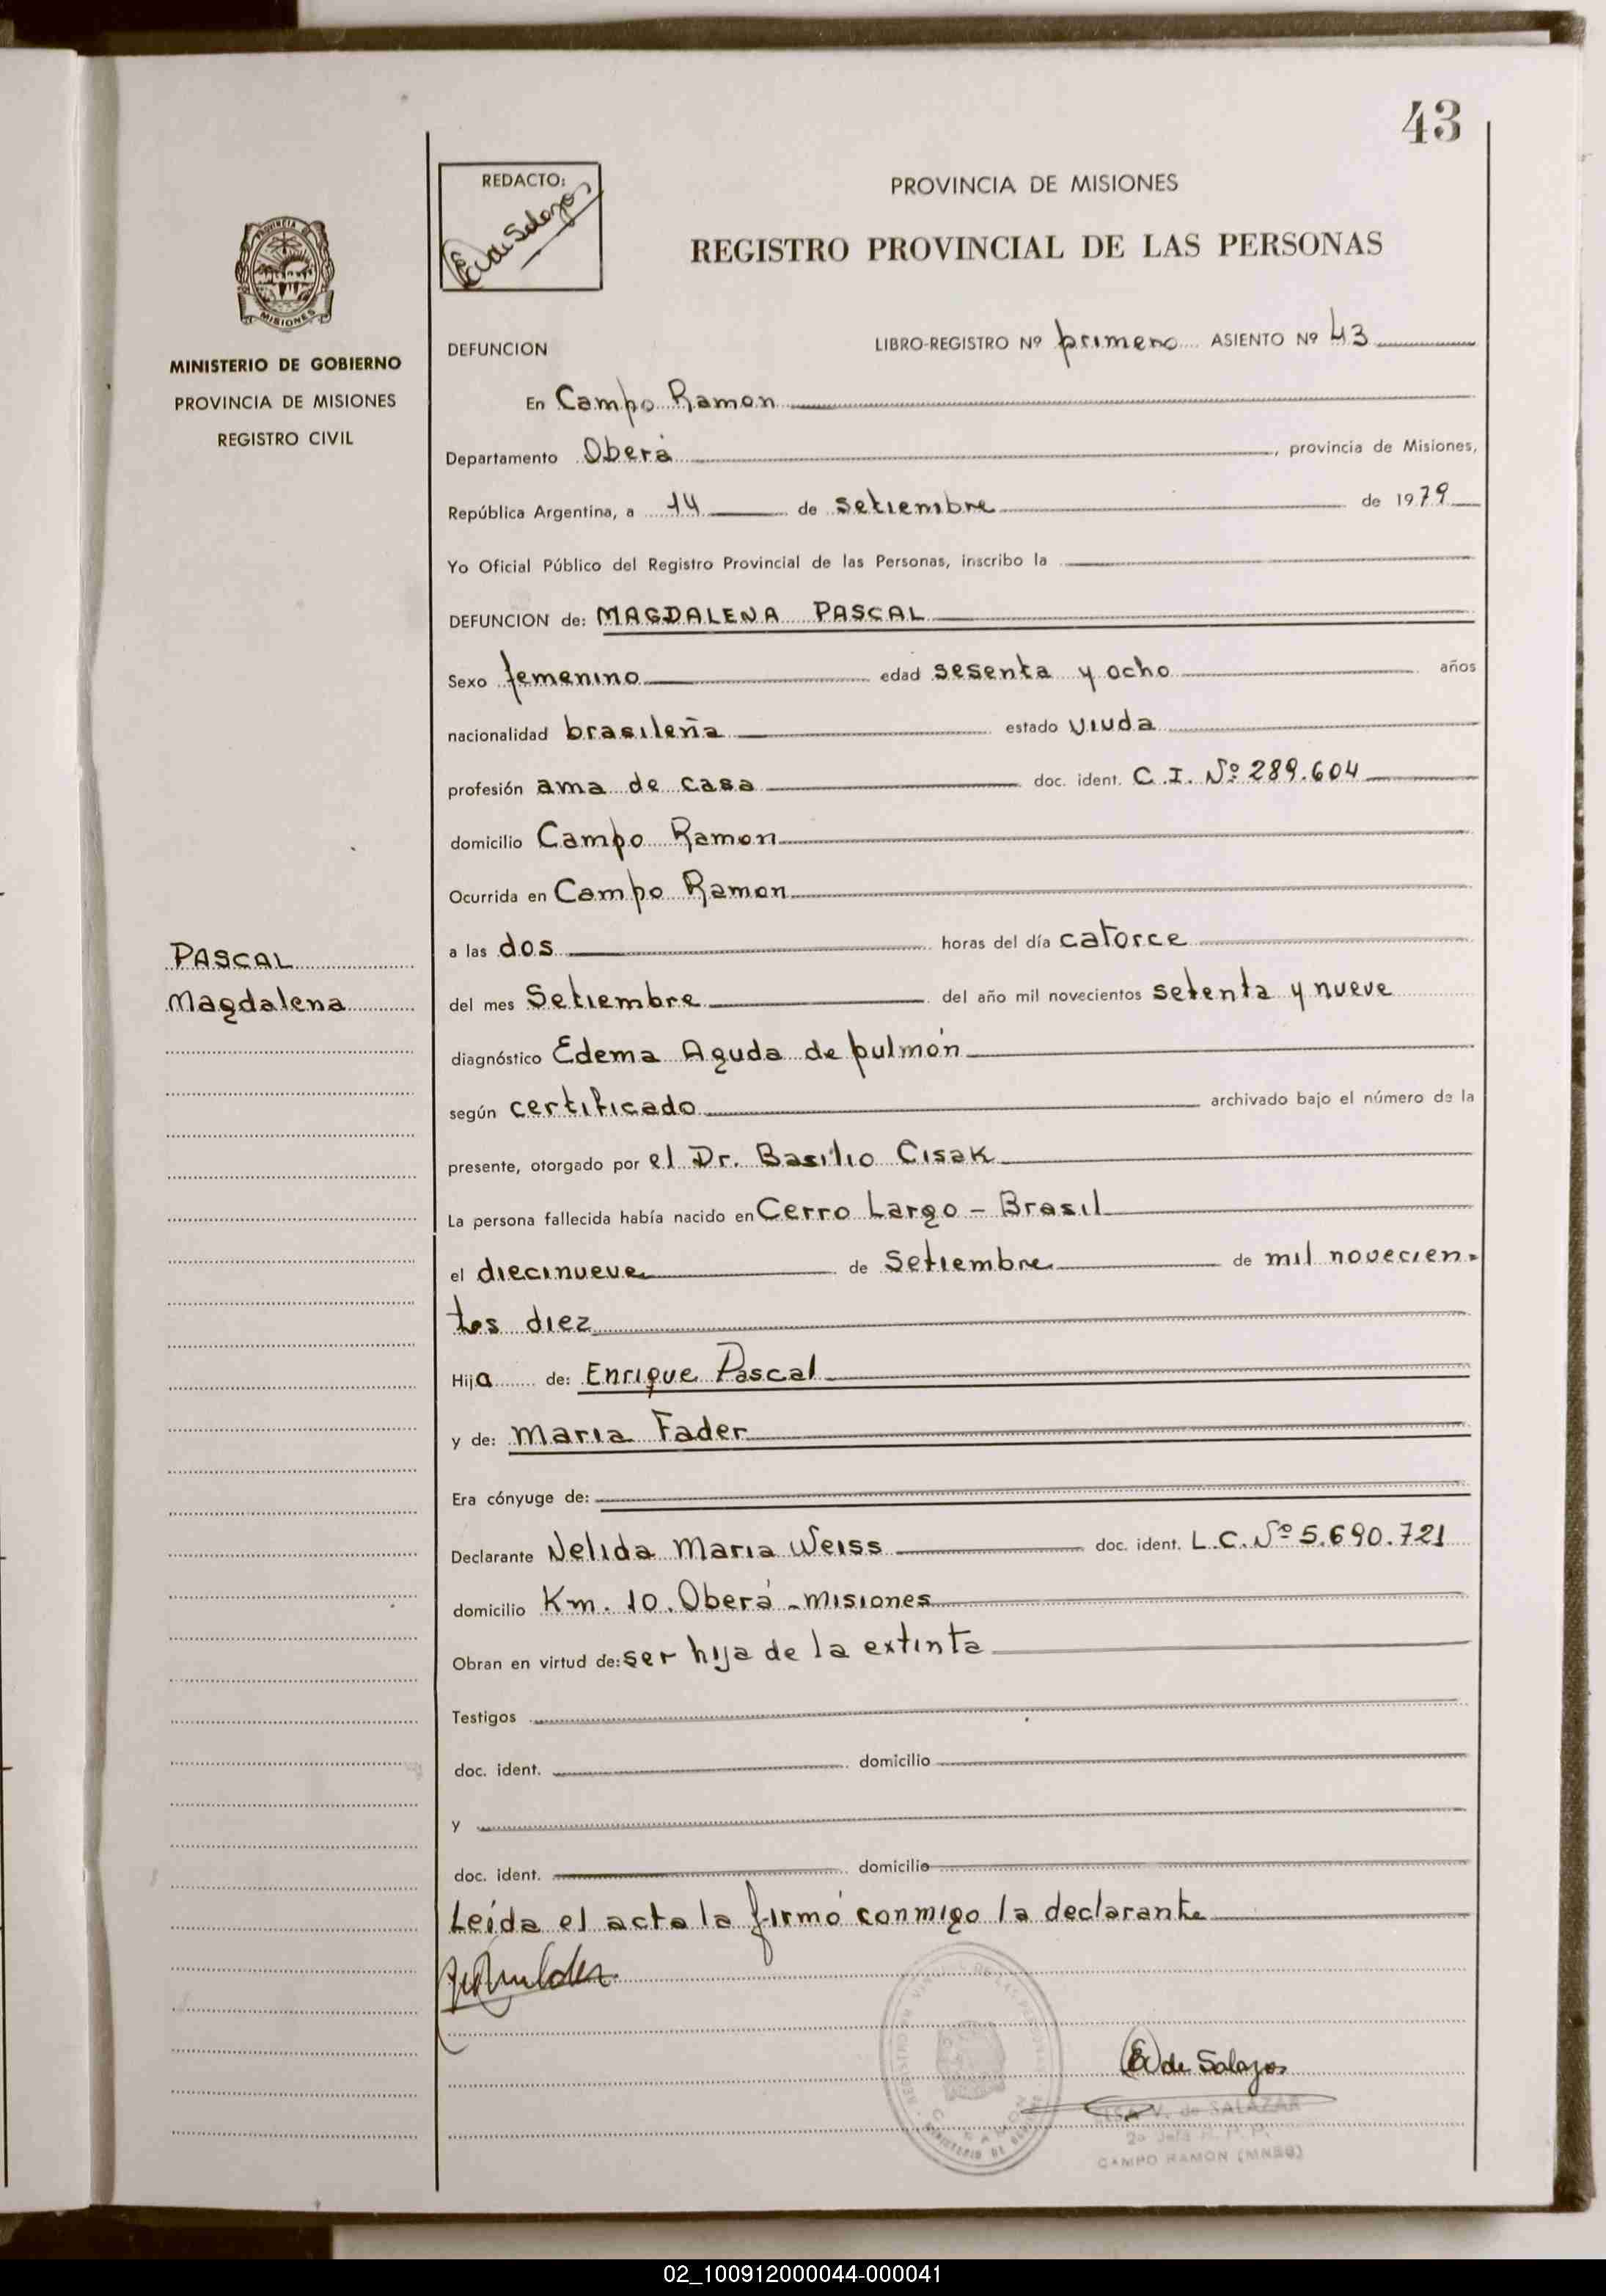 43
REDACTO:
E. de Salazar
PROVINCIA DE MISIONES
REGISTRO PROVINCIAL DE LAS PERSONAS
PROVINCIA DE
MISIONES
MINISTERIO DE GOBIERNO
PROVINCIA DE MISIONES
REGISTRO CIVIL
DEFUNCION
LIBRO-REGISTRO Nº primero ASIENTO Nº 43
En Campo Ramon
Departamento Oberá, provincia de Misiones,
República Argentina, a 14 de setiembre de 1979
Yo Oficial Público del Registro Provincial de las Personas, inscribo la
DEFUNCION de: MAGDALENA PASCAL
Sexo femenino edad sesenta y ocho años
nacionalidad brasileña estado viuda
profesión ama de casa doc. ident. C.I. Nº 289.604
domicilio Campo Ramon
Ocurrida en Campo Ramon
PASCAL
Magdalena
a las dos horas del día catorce
del mes Setiembre del año mil novecientos setenta y nueve
diagnóstico Edema Aguda de pulmón
según certificado archivado bajo el número de la
presente, otorgado por el Dr. Basilio Cisak
La persona fallecida había nacido en Cerro Largo - Brasil
el diecinueve de Setiembre de mil novecien=
tos diez
Hija de: Enrique Pascal
y de: Maria Fader
Era cónyuge de:
Declarante Nelida Maria Weiss doc. ident. L.C. Nº 5.690.721
domicilio Km. 10. Oberá - Misiones
Obran en virtud de: ser hija de la extinta
Testigos
doc. ident. domicilio
y
doc. ident. domicilio
Leída el acta la firmó conmigo la declarante
de Salazar
V. de SALAZAR
CAMPO RAMON (MNES)
02_100912000044-000041